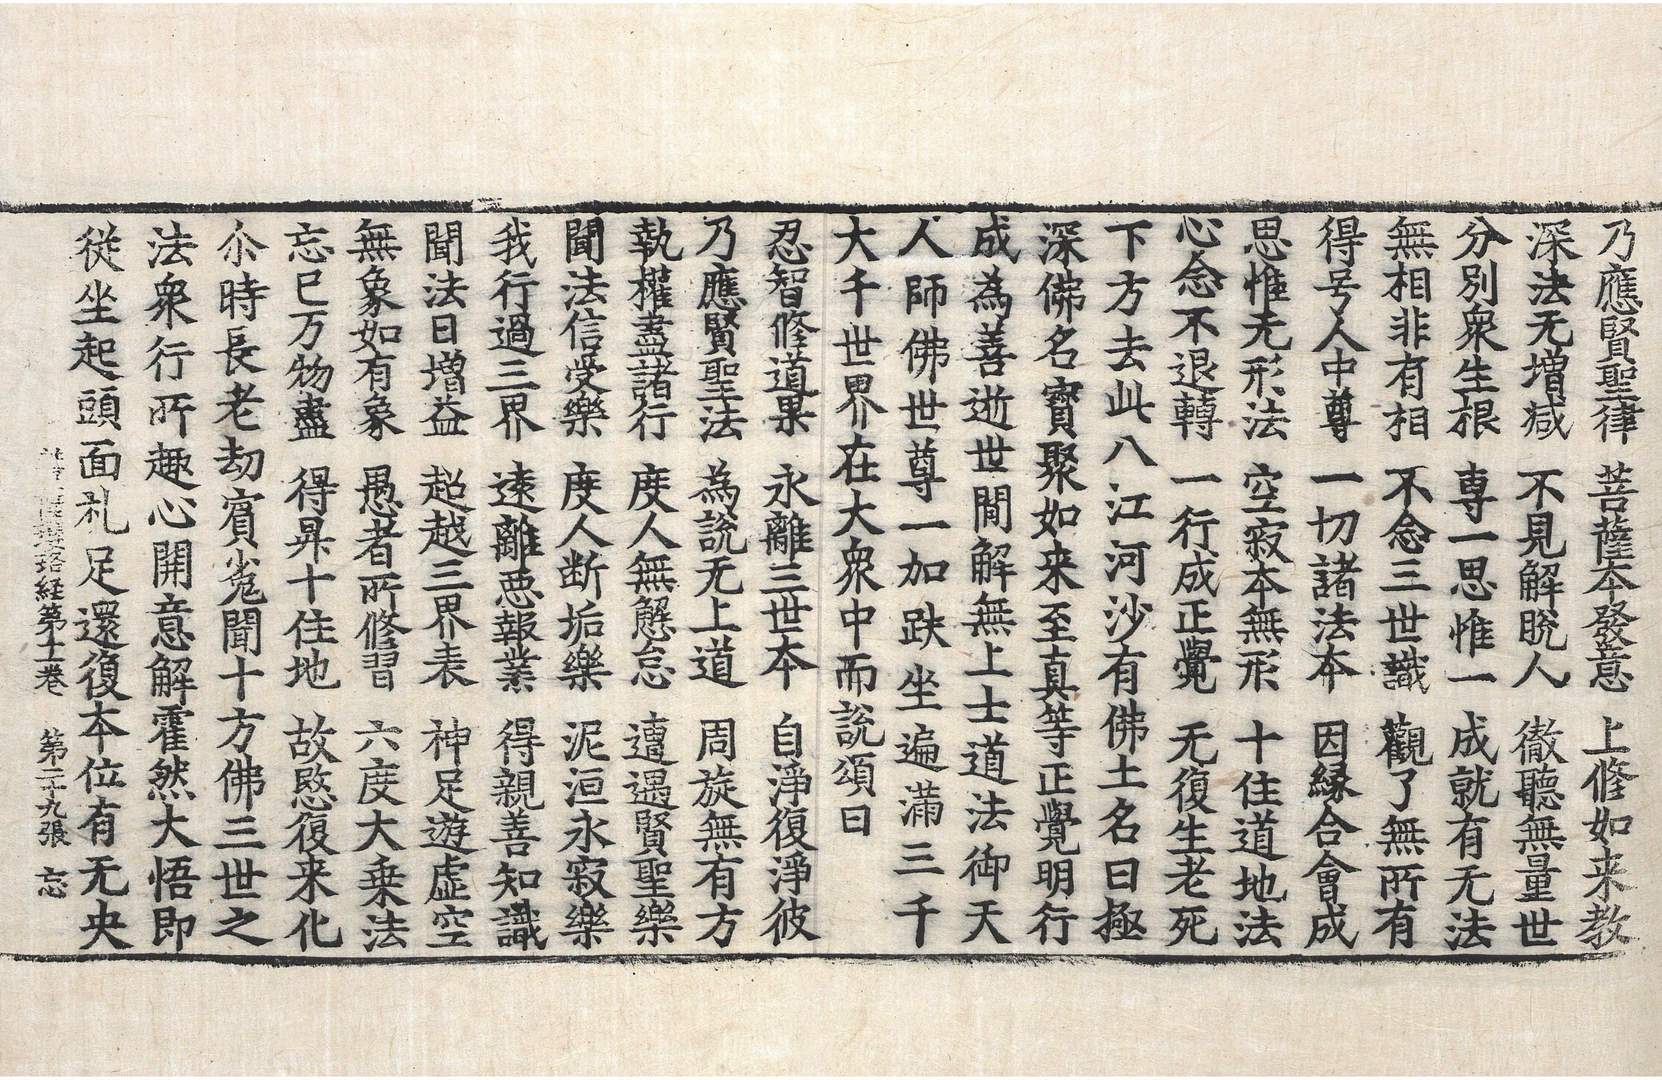 乃應賢聖律 菩薩本發意 上修如来教
深法无增減 不見解脫人 徹聽無量世
分別衆生根 専一思惟一 成就有无法
無相非有相 不念三世識 觀了無所有
得号人中尊 一切諸法本 因緣合會成
思惟无形法 空寂本無形 十住道地法
心念不退轉 一行成正覺 无復生老死
下方去此八江河沙有佛土名曰極
深佛名寶聚如来至真等正覺明行
成為善逝世間解無上士道法御天
人師佛世尊一加趺坐遍滿三千
大千世界在大衆中而說頌曰
忍智修道果 永離三世本 自淨復淨彼
乃應賢聖法 為說无上道 周旋無有方
執權盡諸行 度人無懈怠 遭遇賢聖樂
聞法信受樂 度人断垢樂 泥洹永寂樂
我行過三界 遠離惡報業 得親善知識
聞法日增益 超越三界表 神足遊虛空
無象如有象 愚者所修習 六度大乗法
忘已万物盡 得昇十住地 故愍復来化
尒時長老劫賓㝹聞十方佛三世之
法衆行所趣心開意解霍然大悟即
從坐起頭面礼足還復本位有无央
瓔珞経第十一卷 第二十九張 忘